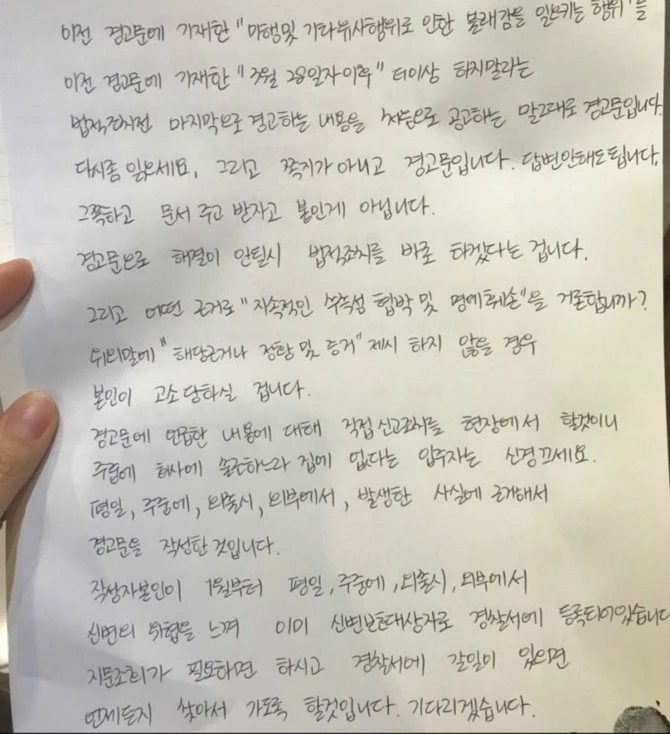 이전 경고문에 기재한 "미행및 기타유사행위로 인한 불쾌감을 일으키는 행위"를
이전 경고문에 기재한 "3월 28일자 이후" 더이상 하지말라는
법적조치전 마지막으로 경고하는 내용을 처음으로 공고하는 말그대로 경고문입니다.
다시좀 읽으세요, 그리고 쪽지가 아니고 경고문입니다. 답변안해도됩니다.
그쪽하고 문서 주고 받자고 붙인게 아닙니다.
경고문으로 해결이 안될시 법적조치를 바로 하겠다는 겁니다.
그리고 어떤 근거로 "지속적인 협박 및 명예훼손"을 거론합니까?
뒤의말에 "해당근거나 정황 및 증거" 제시 하지 않을 경우
본인이 고소당하실 겁니다.
경고문에 언급한 내용에 대해 직접신고조치를 현장에서 할것이니
주중에 회사에 출근하느라 집에 없다는 입주자는 신경끄세요.
평일, 주중에, 외출시, 외부에서, 발생한 사실에 근거해서
경고문을 작성한 것입니다.
작성자본인이 1월부터 평일, 주중에, 외출시, 외부에서
신변의 위협을 느껴 이미 신변보호대상자로 경찰서에 등록되어있습니다
지문조회가 필요하면 하시고 경찰서에 갈일이 있으면
언제든지 찾아서 가도록 할것입니다. 기다리겠습니다.